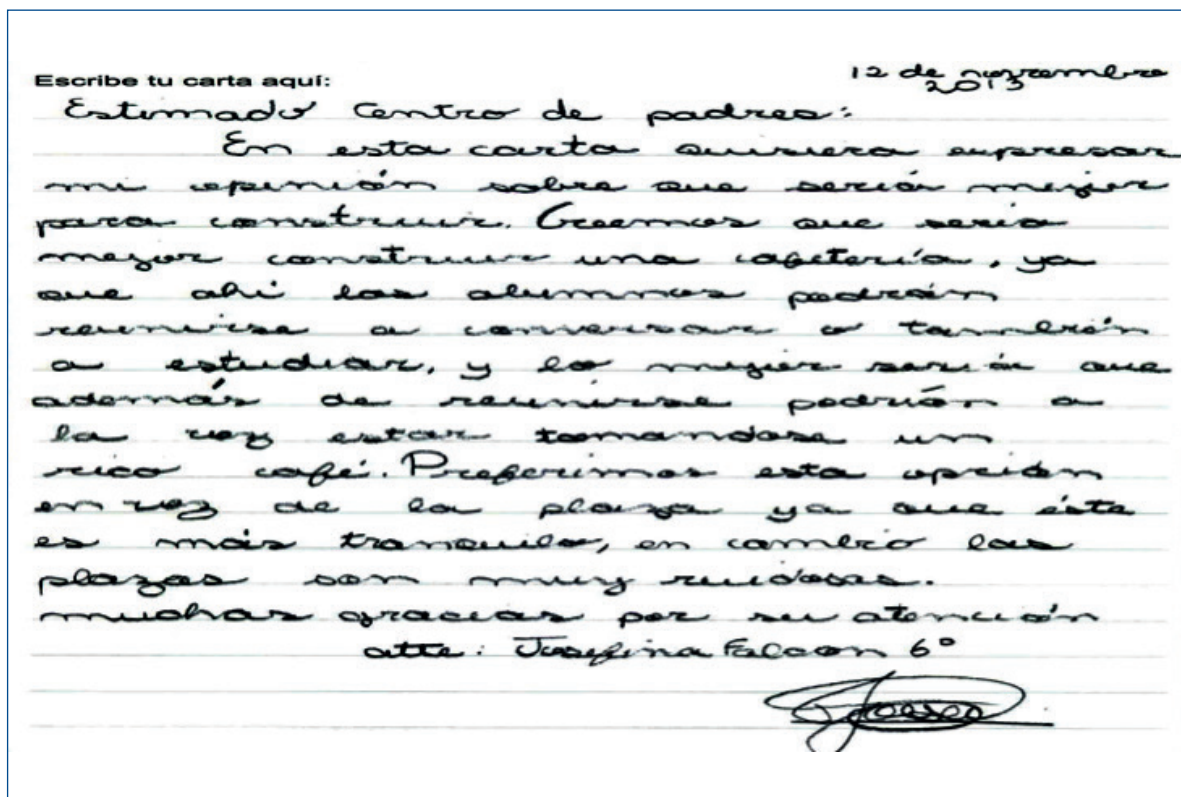 Escribe tu carta aquí:
12 de noviembre
2013
Estimado Centro de padres:
En esta carta quisiera expresar
mi opinión sobre que sería mejor
para construir. Creemos que sería
mejor construir una cafetería, ya
que ahí los alumnos podrán
reunirse a conversar o también
a estudiar, y lo mejor sería que
además de reunirse podrían a
la vez estar tomandose un
rico café. Preferimos esta opción
en vez de la plaza ya que éste
es más tranquilo, en cambio las
plazas son muy ruidosas.
muchas gracias por su atención
atte: Josefina Falcon 6°